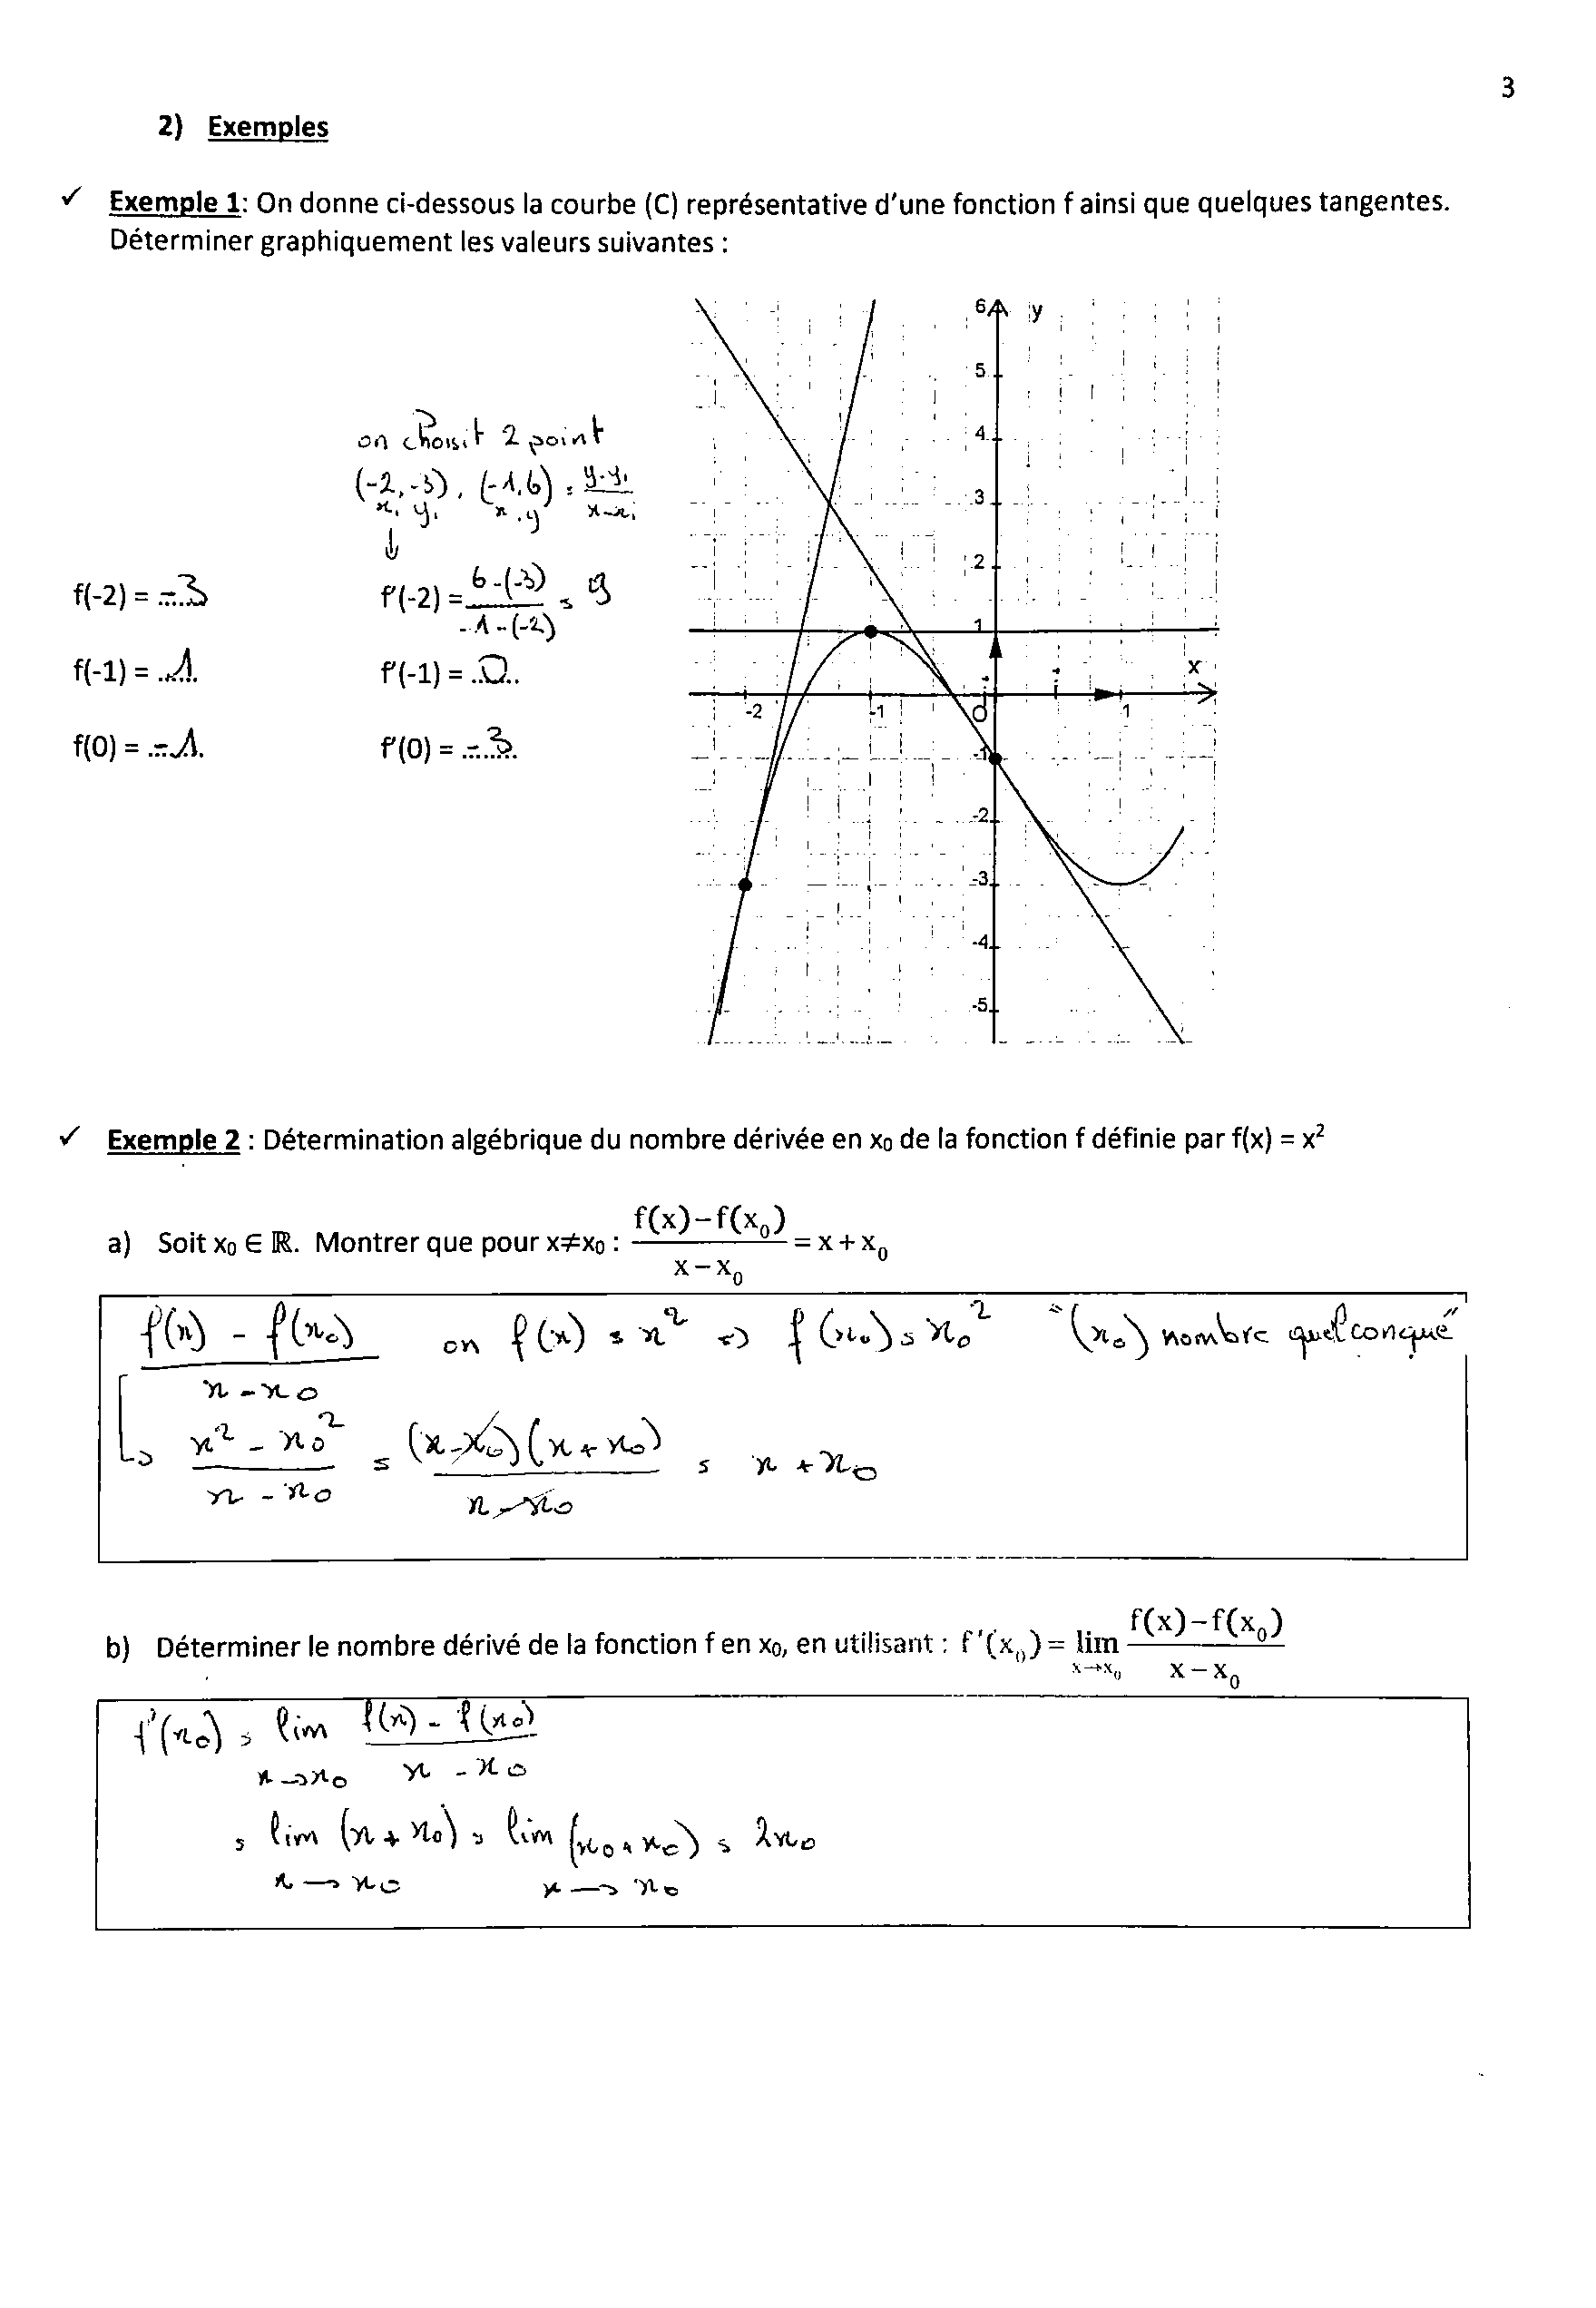 3
2) Exemples
✓ Exemple 1: On donne ci-dessous la courbe (C) représentative d'une fonction f ainsi que quelques tangentes.
Déterminer graphiquement les valeurs suivantes :
on choisit 2 point
(-2,-3), (-1,6) = y-y₁ / x-x₁
x₁ y₁ x . y
↓
f(-2) = -3 f'(-2) = 6-(-3) / -1-(-2) = 9
f(-1) = 1 f'(-1) = 0
f(0) = -1 f'(0) = -3
6 y
5
4
3
2
1
x
-2 -1 O 1
-1
-2
-3
-4
-5
✓ Exemple 2 : Détermination algébrique du nombre dérivée en x₀ de la fonction f définie par f(x) = x²
a) Soit x₀ ∈ ℝ. Montrer que pour x≠x₀ : f(x)-f(x₀) / x-x₀ = x+x₀
f(x) - f(x₀) / x - x₀ on f(x) = x² => f(x₀) = x₀² "(x₀) nombre quelconque"
↳ x² - x₀² / x - x₀ = (x-x₀)(x+x₀) / x-x₀ = x + x₀
b) Déterminer le nombre dérivé de la fonction f en x₀, en utilisant : f'(x₀) = lim x→x₀ f(x)-f(x₀) / x-x₀
f'(x₀) = lim x→x₀ f(x) - f(x₀) / x - x₀
= lim x→x₀ (x + x₀) = lim x→x₀ (x₀+x₀) = 2x₀